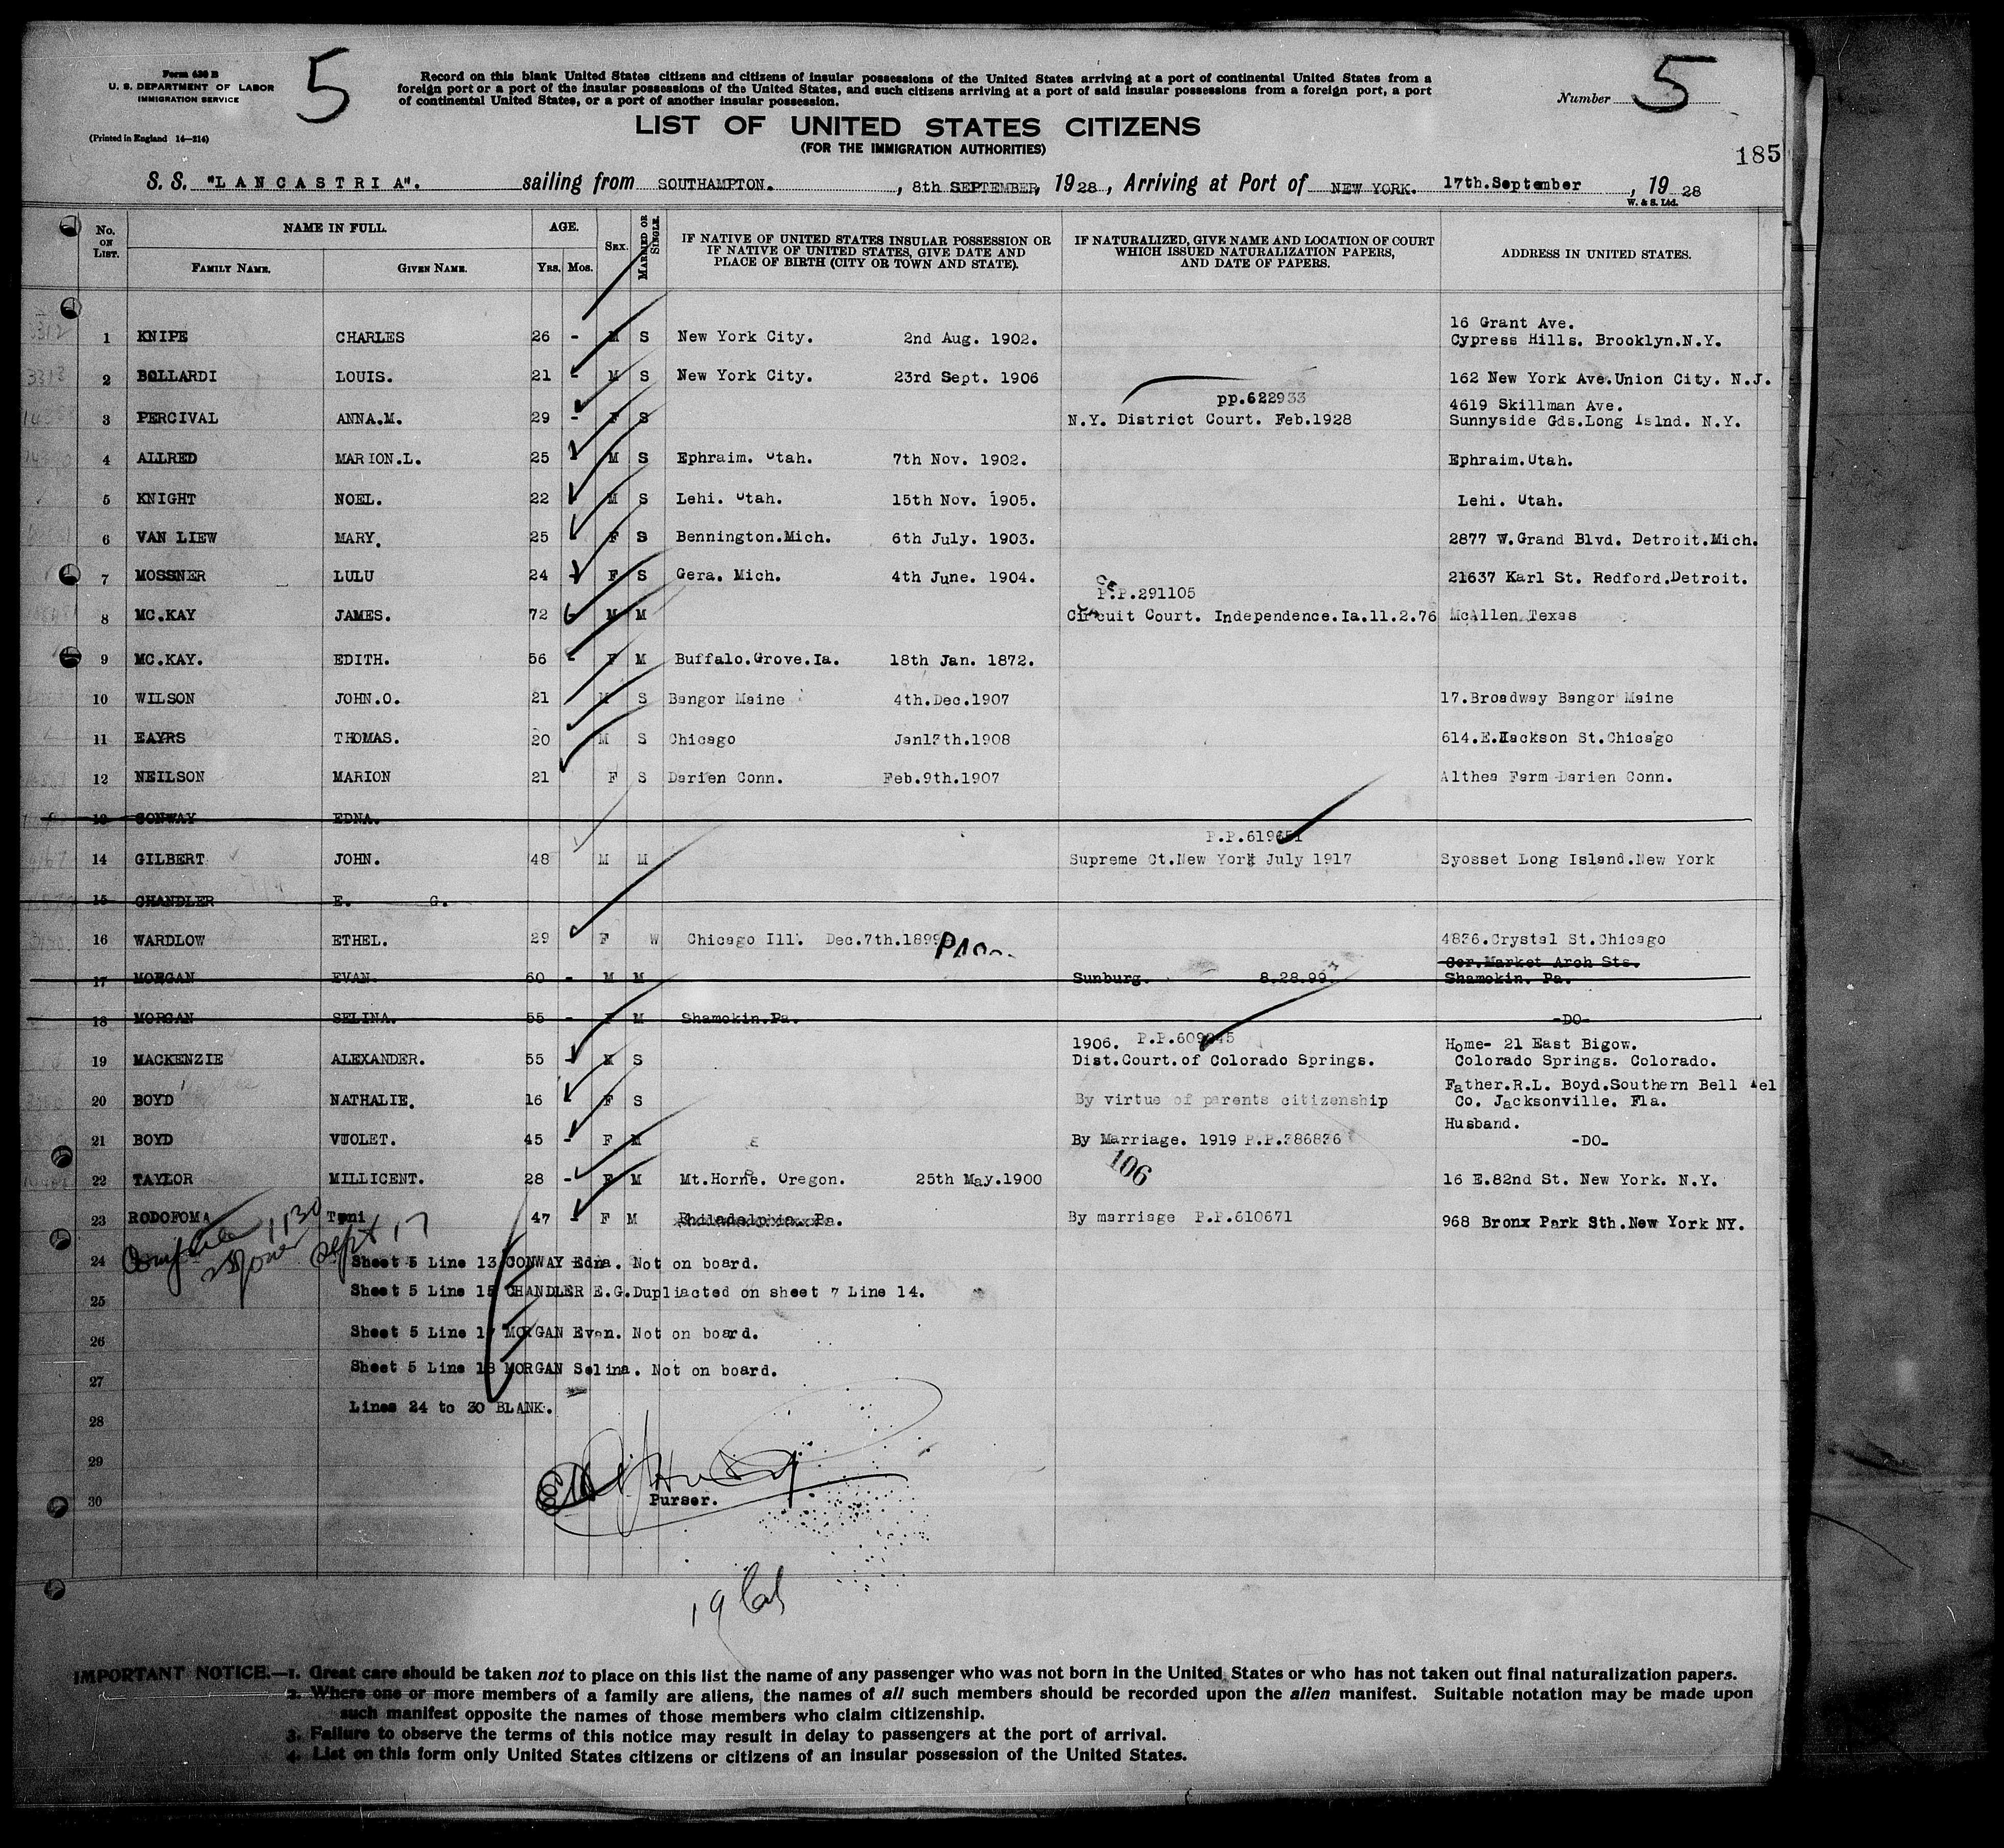 Form 630 B
U. S. DEPARTMENT OF LABOR
IMMIGRATION SERVICE
(Printed in England 14—214)
5
Record on this blank United States citizens and citizens of insular possessions of the United States arriving at a port of continental United States from a
foreign port or a port of the insular possessions of the United States, and such citizens arriving at a port of said insular possessions from a foreign port, a port
of continental United States, or a port of another insular possession.
Number 5
LIST OF UNITED STATES CITIZENS
(FOR THE IMMIGRATION AUTHORITIES)
185
S. S. "LANCASTRIA". sailing from SOUTHAMPTON. , 8th SEPTEMBER, 1928, Arriving at Port of NEW YORK. 17th.September , 19 28
W. & S. Ltd.
No. ON LIST. NAME IN FULL. AGE. SEX. MARRIED OR SINGLE. IF NATIVE OF UNITED STATES INSULAR POSSESSION OR IF NATIVE OF UNITED STATES, GIVE DATE AND PLACE OF BIRTH (CITY OR TOWN AND STATE). IF NATURALIZED, GIVE NAME AND LOCATION OF COURT WHICH ISSUED NATURALIZATION PAPERS, AND DATE OF PAPERS. ADDRESS IN UNITED STATES.
FAMILY NAME. GIVEN NAME. YRS. MOS.
16 Grant Ave.
1 KNIPE CHARLES 26 - M S New York City. 2nd Aug. 1902. Cypress Hills. Brooklyn.N.Y.
2 BOLLARDI LOUIS. 21 - M S New York City. 23rd Sept. 1906 162 New York Ave.Union City. N.J.
pp.622933 4619 Skillman Ave.
3 PERCIVAL ANNA.M. 29 - F S N.Y. District Court. Feb.1928 Sunnyside Gds.Long Islnd. N.Y.
4 ALLRED MARION.L. 25 M S Ephraim. Utah. 7th Nov. 1902. Ephraim.Utah.
5 KNIGHT NOEL. 22 M S Lehi. Utah. 15th Nov. 1905. Lehi. Utah.
6 VAN LIEW MARY. 25 F S Bennington.Mich. 6th July. 1903. 2877 W.Grand Blvd. Detroit.Mich.
7 MOSSNER LULU 24 - F S Gera. Mich. 4th June. 1904. 21637 Karl St. Redford.Detroit.
P.P.291105
8 MC.KAY JAMES. 72 M M Circuit Court. Independence.Ia.11.2.76 McAllen Texas
9 MC.KAY. EDITH. 56 - F M Buffalo.Grove.Ia. 18th Jan. 1872.
10 WILSON JOHN.O. 21 M S Bangor Maine 4th.Dec.1907 17.Broadway Bangor Maine
11 EAYRS THOMAS. 20 M S Chicago Jan13th.1908 614.E.Jackson St.Chicago
12 NEILSON MARION 21 F S Darien Conn. Feb.9th.1907 Althea Farm Darien Conn.
13 CONWAY EDNA.
P.P.619651
14 GILBERT JOHN. 48 M M Supreme Ct.New York July 1917 Syosset Long Island.New York
15 CHANDLER E. G.
16 WARDLOW ETHEL. 29 F W Chicago Ill. Dec.7th.1899 4836.Crystal St.Chicago
Cor.Market Arch Sts.
17 MORGAN EVAN. 60 - M M Sunburg. 8.28.99 Shamokin. Pa.
18 MORGAN SELINA. 55 - F M Shamokin.Pa. -DO-
1906. P.P.609245 Home- 21 East Bigow.
19 MACKENZIE ALEXANDER. 55 - M S Dist.Court.of Colorado Springs. Colorado Springs. Colorado.
Father.R.L. Boyd.Southern Bell Tel
20 BOYD NATHALIE. 16 F S By virtue of parents citizenship Co. Jacksonville. Fla.
Husband.
21 BOYD VIOLET. 45 - F M By Marriage. 1919 P.P.386836 -DO-
106
22 TAYLOR MILLICENT. 28 - F M Mt.Horne. Oregon. 25th May.1900 16 E.82nd St. New York. N.Y.
23 RODOFOMA Toni 47 - F M Philadelphia. Pa. By marriage P.P.610671 968 Bronx Park Sth.New York NY.
1130 Sept 17
24 Sheet 5 Line 13 CONWAY Edna. Not on board.
25 Sheet 5 Line 15 CHANDLER E.G.Dupliacted on sheet 7 Line 14.
26 Sheet 5 Line 17 MORGAN Evan. Not on board.
27 Sheet 5 Line 18 MORGAN Selina. Not on board.
28 Lines 24 to 30 BLANK.
29
30 Purser.
IMPORTANT NOTICE.—1. Great care should be taken not to place on this list the name of any passenger who was not born in the United States or who has not taken out final naturalization papers.
2. Where one or more members of a family are aliens, the names of all such members should be recorded upon the alien manifest. Suitable notation may be made upon
such manifest opposite the names of those members who claim citizenship.
3. Failure to observe the terms of this notice may result in delay to passengers at the port of arrival.
4. List on this form only United States citizens or citizens of an insular possession of the United States.